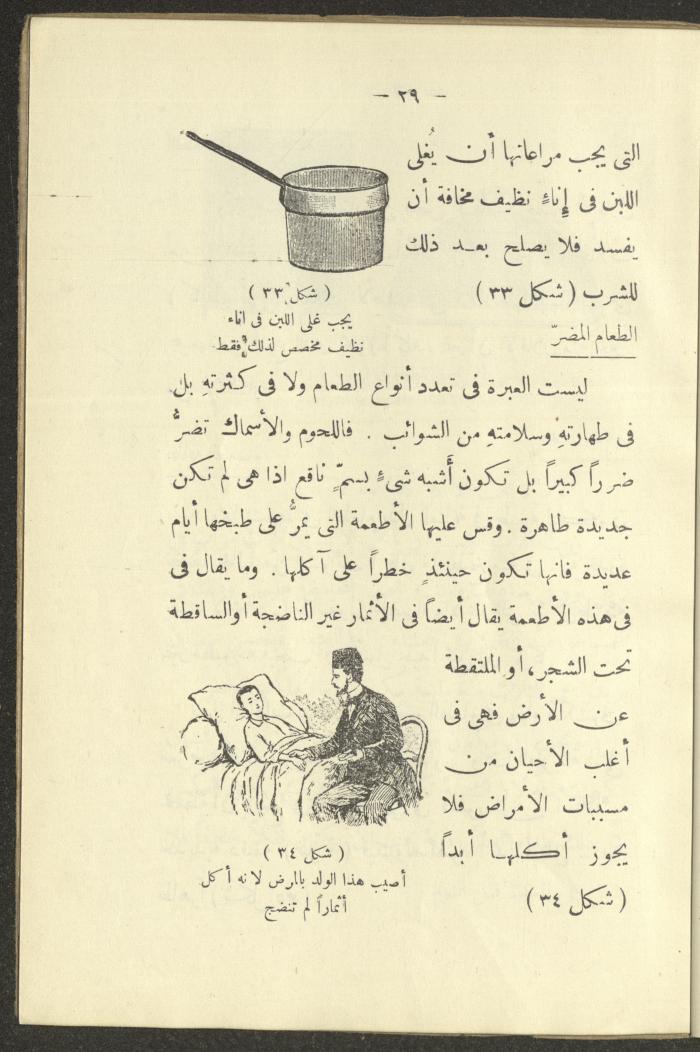 — ٢٩ —
التى يجب مراعاتها أن يُغلى
اللبن فى إِناءٍ نظيف مخافة أن
يفسد فلا يصلح بعد ذلك
للشرب ( شكل ٣٣ )
( شكل ٣٣ )
يجب غلى اللبن فى اناء
نظيف مخصص لذلك فقط
الطعام المضرّ
ليست العبرة فى تعدد أنواع الطعام ولا فى كثرتهِ بل
فى طهارتهِ وسلامتهِ من الشوائب . فاللحوم والأسماك تضرُّ
ضرراً كبيراً بل تكون أَشبه شىءٍ بسمٍّ ناقع اذا هى لم تكن
جديدة طاهرة . وقس عليها الأطعمة التى يمرُّ على طبخها أيام
عديدة فانها تكون حينئذٍ خطراً على آكلها . وما يقال فى
فى هذه الأطعمة يقال أيضاً فى الأثمار غير الناضجة أو الساقطة
تحت الشجر ، أو الملتقطة
عن الأرض فهى فى
أغلب الأحيان من
مسببات الأمراض فلا
يجوز أكلها أبداً
( شكل ٣٤ )
( شكل ٣٤ )
أصيب هذا الولد بالمرض لانه أكل
أثماراً لم تنضج